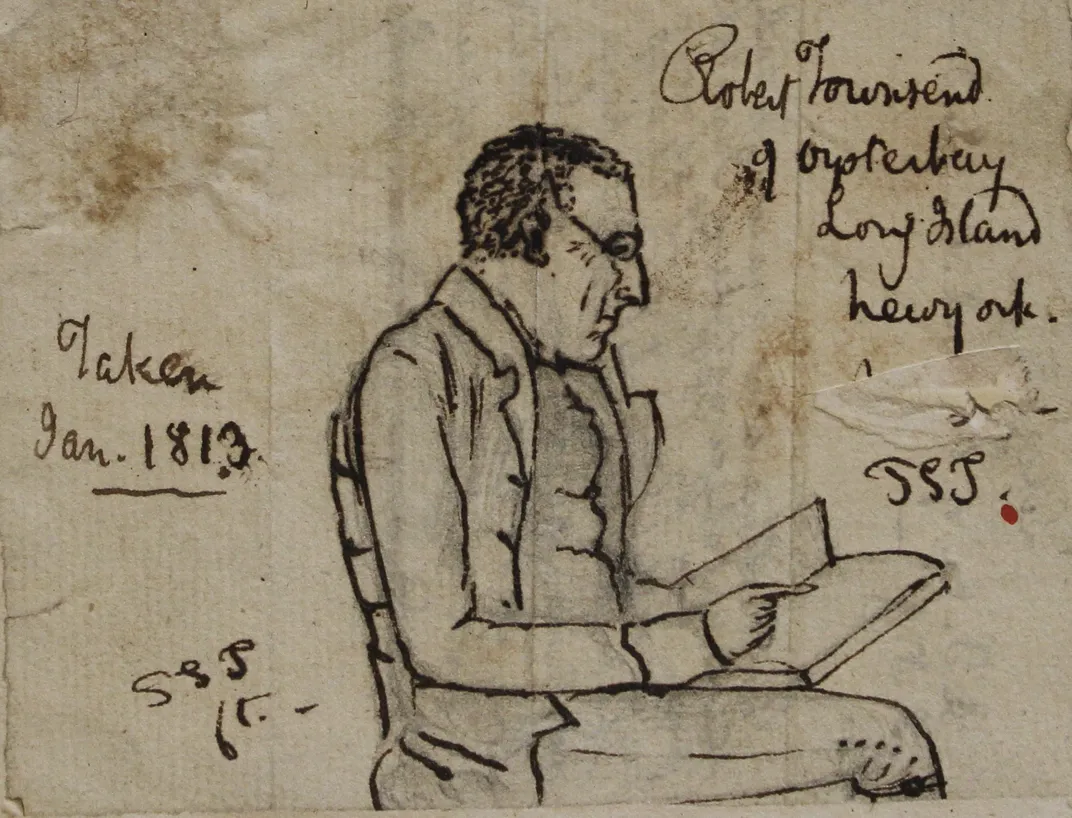 Robert Townsend
of oysterbay
Long Island
newyork.
Taken
Jan. 1813